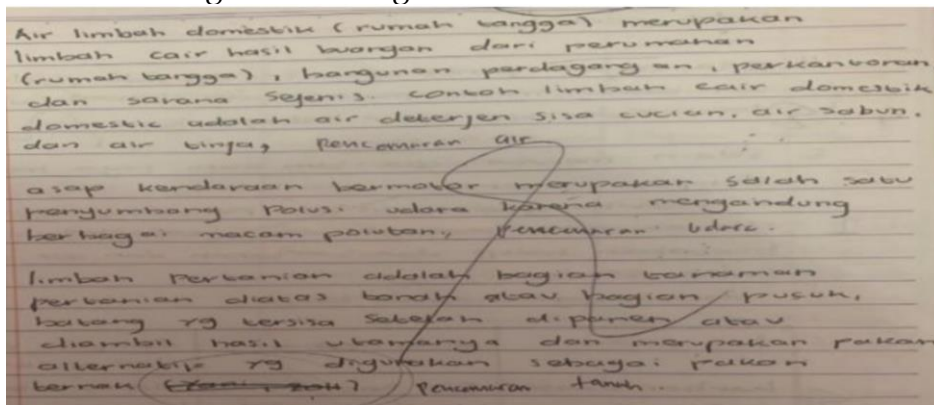 Air limbah domestik (rumah tangga) merupakan
limbah cair hasil buangan dari perumahan
(rumah tangga), bangunan perdagangan, perkantoran
dan sarana sejenis. contoh limbah cair domestik
domestic adalah air deterjen sisa cucian, air sabun,
dan air tinja, Pencemaran air
asap kendaraan bermotor merupakan salah satu
penyumbang Polusi udara karena mengandung
berbagai macam polutan, Pencemaran Udara.
limbah Pertanian adalah bagian tanaman
pertanian diatas tanah atau bagian pucuk,
batang yg tersisa setelah dipanen atau
diambil hasil utamanya dan merupakan pakan
alternatif yg digunakan sebagai pakan
ternak Pencemaran tanah.